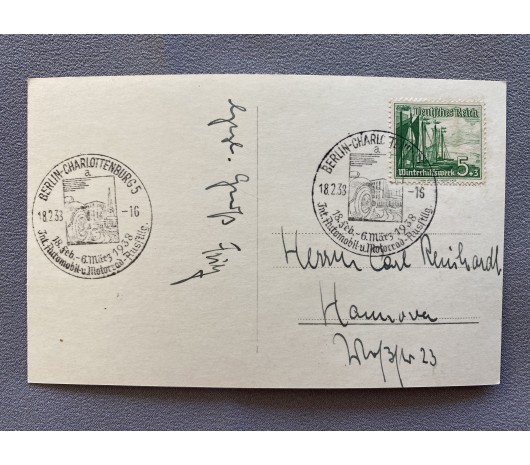 BERLIN-CHARLOTTENBURG 5
a
18.2.38 -16
18. Feb.-6. März 1938
Int. Automobil-u. Motorrad-Ausstlg.
Gruß
Deutsches Reich
5+3
Winterhilfswerk
BERLIN-CHARLOTTEN
a
18.2.38 -16
18. Feb.-6. März 1938
Int. Automobil-u. Motorrad-Ausstlg.
Herrn Carl Reinhardt
Hannover
23